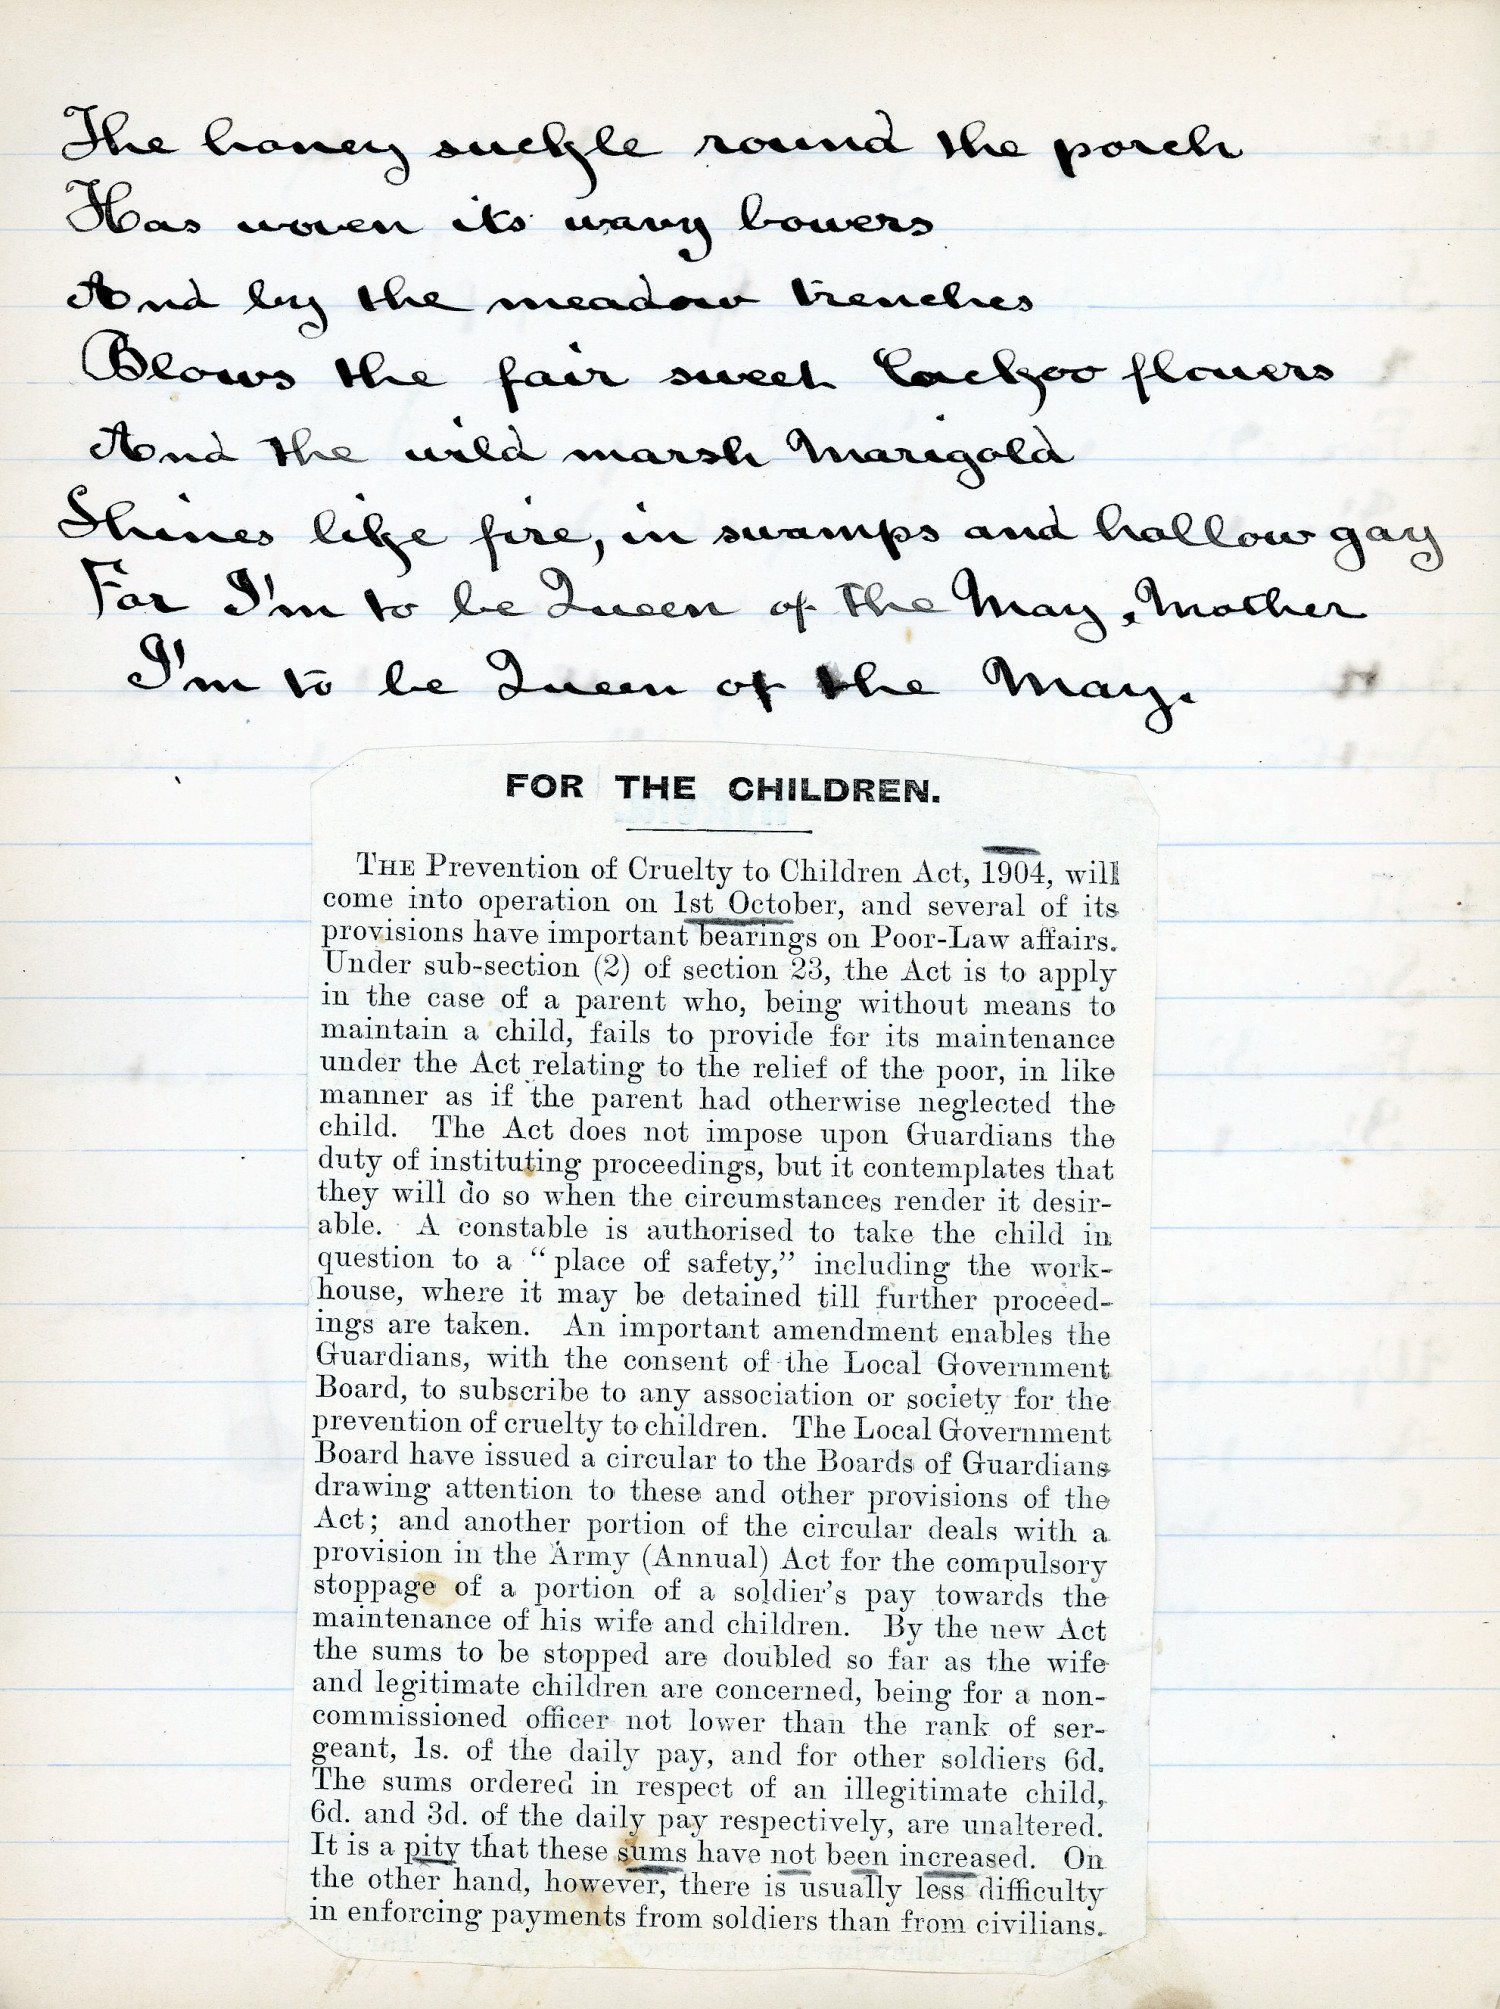 The honey suckle round the porch
Has woven its wavy bowers
And by the meadow trenches
Blows the fair sweet Cuckoo flowers
And the wild marsh Marigold
Shines like fire, in swamps and hollow gay
For I'm to be Queen of the May, Mother
I'm to be Queen of the May.
FOR THE CHILDREN.
THE Prevention of Cruelty to Children Act, 1904, will
come into operation on 1st October, and several of its
provisions have important bearings on Poor-Law affairs.
Under sub-section (2) of section 23, the Act is to apply
in the case of a parent who, being without means to
maintain a child, fails to provide for its maintenance
under the Act relating to the relief of the poor, in like
manner as if the parent had otherwise neglected the
child. The Act does not impose upon Guardians the
duty of instituting proceedings, but it contemplates that
they will do so when the circumstances render it desir-
able. A constable is authorised to take the child in
question to a “place of safety,” including the work-
house, where it may be detained till further proceed-
ings are taken. An important amendment enables the
Guardians, with the consent of the Local Government
Board, to subscribe to any association or society for the
prevention of cruelty to children. The Local Government
Board have issued a circular to the Boards of Guardians
drawing attention to these and other provisions of the
Act; and another portion of the circular deals with a
provision in the Army (Annual) Act for the compulsory
stoppage of a portion of a soldier's pay towards the
maintenance of his wife and children. By the new Act
the sums to be stopped are doubled so far as the wife
and legitimate children are concerned, being for a non-
commissioned officer not lower than the rank of ser-
geant, 1s. of the daily pay, and for other soldiers 6d.
The sums ordered in respect of an illegitimate child,
6d. and 3d. of the daily pay respectively, are unaltered.
It is a pity that these sums have not been increased. On
the other hand, however, there is usually less difficulty
in enforcing payments from soldiers than from civilians.